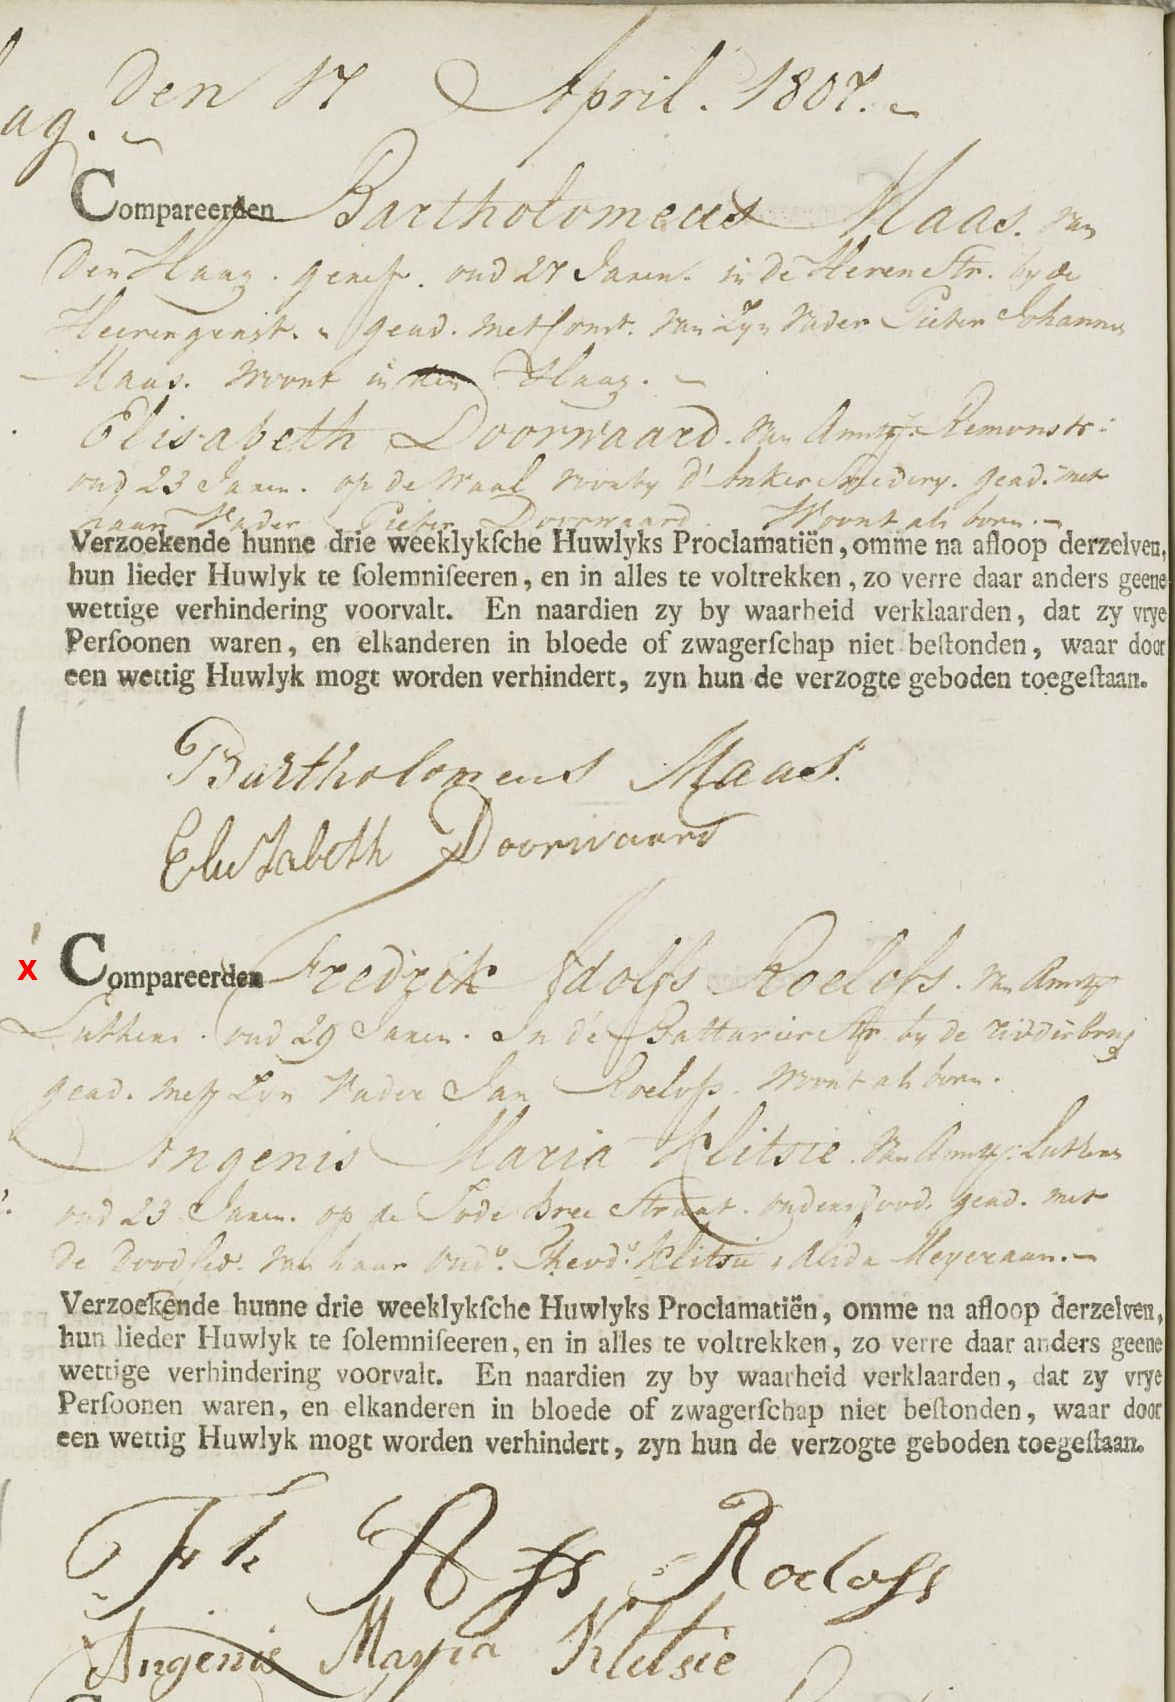 Den 17 April. 1807.
ag.
Compareerden Bartholomeus Maas. van
Den Haag. geref. oud 27 Jaren. in de Heren Str. by de
Heerengragt. gead. met Const. van Zyn Vader Pieter Johannes
Maas. woont in den Haag.
Elisabeth Doorwaard. van Amst. Remonstr:
oud 23 Jaren. op de Waal by d' Anker Smedery. gead. met
haar Vader Pieter Doorwaard. Woont als boven.
Verzoekende hunne drie weeklykſche Huwlyks Proclamatiën, omme na afloop derzelven,
hun lieder Huwlyk te ſolemniſeeren, en in alles te voltrekken, zo verre daar anders geene
wettige verhindering voorvalt. En naardien zy by waarheid verklaarden, dat zy vrye
Perſoonen waren, en elkanderen in bloede of zwagerſchap niet beſtonden, waar door
een wettig Huwlyk mogt worden verhindert, zyn hun de verzogte geboden toegeſtaan.
Bartholomeus Maas.
Elisabeth Doorwaard
x Compareerden Fredrik Adolfs Roelofs. van Amst
Luthers. oud 29 Jaren. In de Battarier Str by de ridderbrug
gead. met Zyn Vader Jan Roelofs. woont als boven.
Angenis Maria Klitsie. van Amst: Luthers
oud 23 Jaren. op de Jode Bree Straat. ouders dood. gead. met
de doodced. van haar oud.s Theod.s Klitsie & Alida Meyeraan.
Verzoekende hunne drie weeklykſche Huwlyks Proclamatiën, omme na afloop derzelven,
hun lieder Huwlyk te ſolemniſeeren, en in alles te voltrekken, zo verre daar anders geene
wettige verhindering voorvalt. En naardien zy by waarheid verklaarden, dat zy vrye
Perſoonen waren, en elkanderen in bloede of zwagerſchap niet beſtonden, waar door
een wettig Huwlyk mogt worden verhindert, zyn hun de verzogte geboden toegeſtaan.
Roelofs
Angenis Marya Klitsie